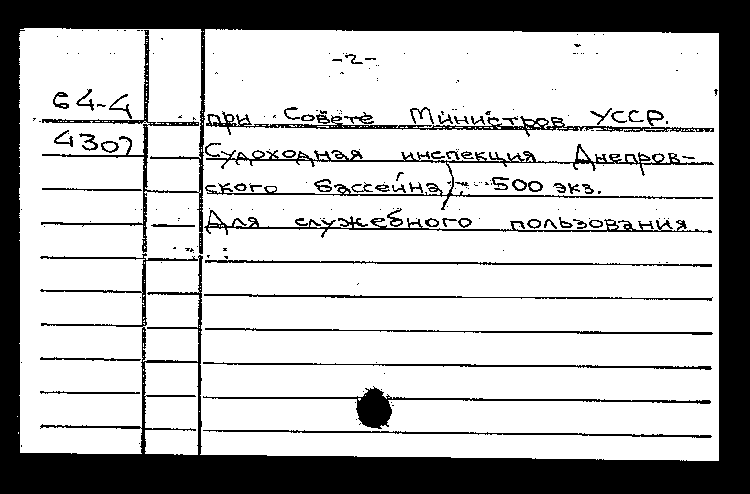 -2-
64-4
при Совете Министров УССР.
4307
Судоходная инспекция Днепров-
ского бассейна). 500 экз.
Для служебного пользования